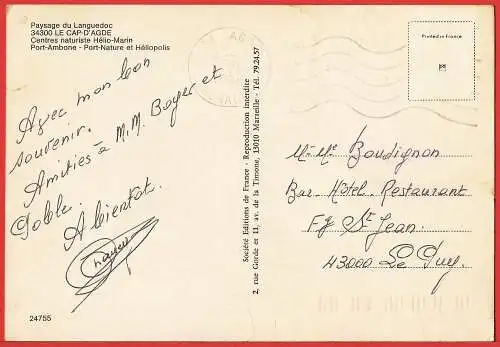 Paysage du Languedoc
34300 LE CAP-D'AGDE
Centres naturiste Hélio-Marin
Port-Ambone - Port-Nature et Héliopolis
Avec mon bon
souvenir.
Amitiés à M.M. Boyer et
A bientot.
24755
Société Editions de France - Reproduction interdite
2, rue Gorde et 11, av. de la Timone, 13010 Marseille - Tél. 79.24.57
Printed in France
Mr Me Boudignon
Bar. Hôtel. Restaurant
Fg St Jean.
43000 Le Puy.